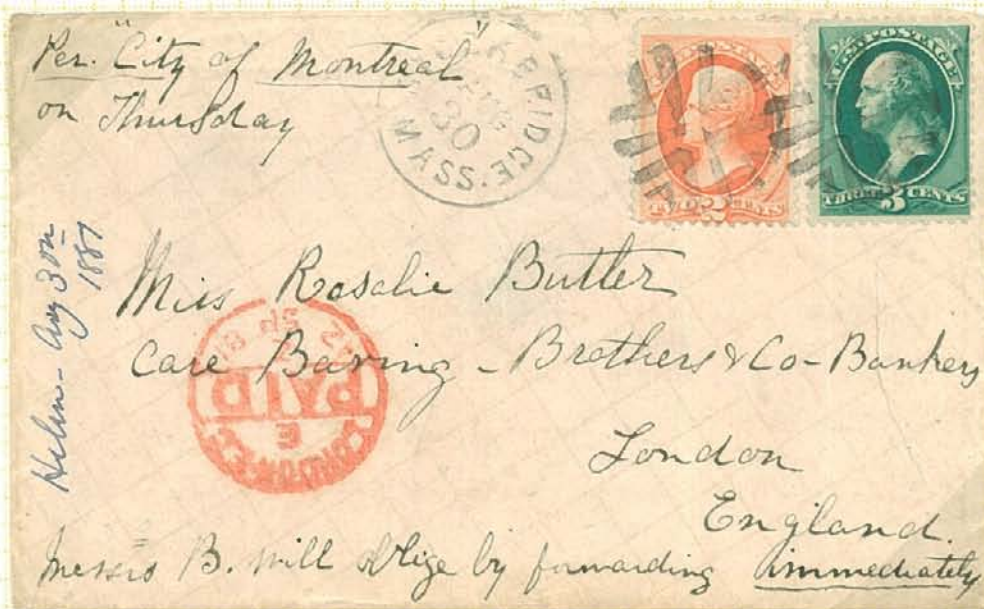 Per. "City of Montreal"
on Thursday
30
MASS.
U.S. POSTAGE
TWO 2 CENTS
U.S. POSTAGE
THREE 3 CENTS
Helen - Aug 30th
1881
Miss Rosalie Butler
Care Baring - Brothers & Co - Bankers
London
England.
Messrs B. will oblige by forwarding immediately
PAID
LONDON